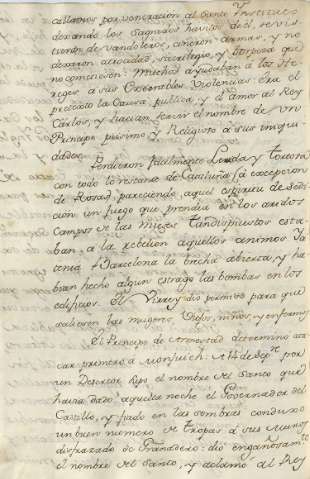 callamos por veneracion al Santo Instituto
dexando los Sagrados havitos, se revis
tieron de vandoleros, ciñeron armas, y no
dexaron atrocidad, sacrilegio, y torpeza que
no cometiesen: muchos ayudaban á los He
reges a sus execrables violencias: era el
pretexto la Causa publica, y el amor al Rey
Carlos, y hacian servir el nombre de un
Principe piissimo y Religioso a sus iniqui
dades.
Perdieron facilmente Lerida y Tortosa
con todo lo restante de Cataluña (á excepcion
de Rosas) pareciendo, aquel espiritu de Sedi
cion un fuego que prendia en los aridos
campos de las mieses tan dispuestos esta
ban, a la rebelion aquellos animos Ya
tenia Barcelona la brecha abierta, y ha
bian hecho algun estrago las bombas en los
edificios. El Virrey dio permiso para que
saliesen las mugeres, Viejos, niños, y enfermos
El Principe de Armestad determinó ata
car primero a Monjuich. A 14 de Sepre. por
un Desertor supo el nombre del Santo que
havia dado aquella noche el Governador del
Castillo, y fiado en las sombras conduxo
un buen numero de tropas á sus Muros
disfrazado de Granadero: dió engañosamte.
el nombre del Santo, y aclamó al Rey